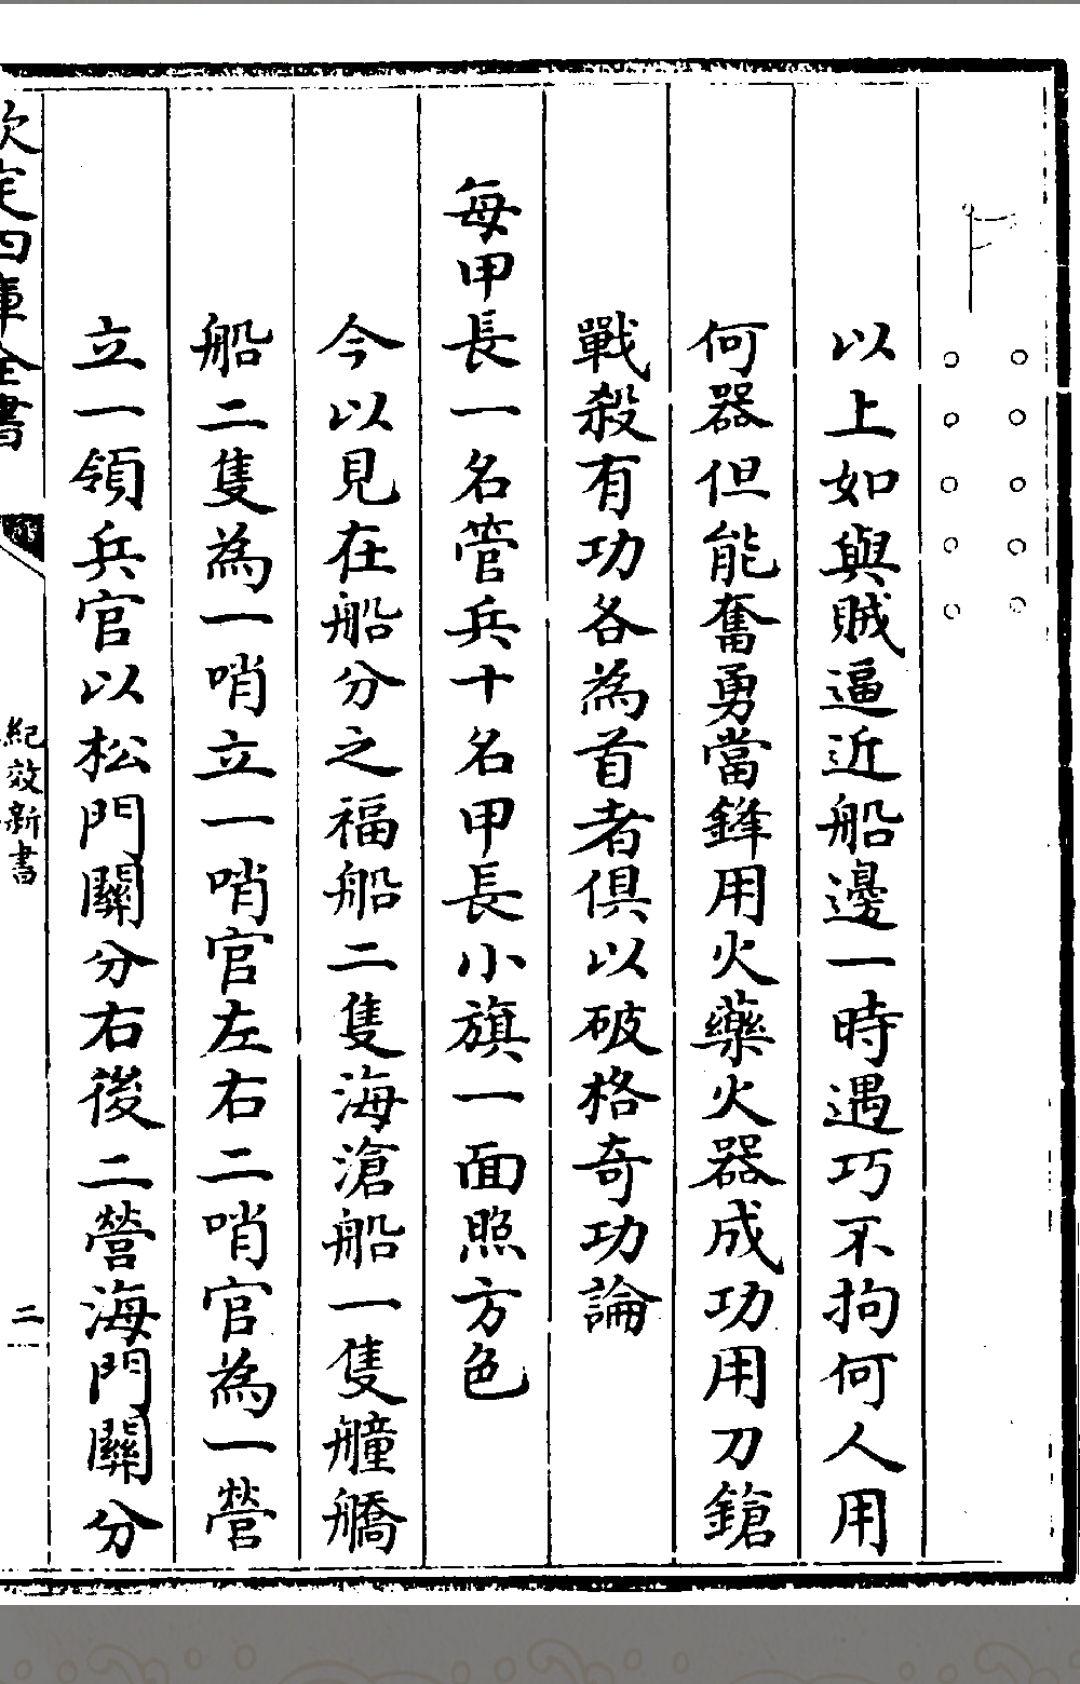 以上如與賊逼近船邊一時遇巧不拘何人用
何器但能奮勇當鋒用火藥火器成功用刀鎗
戰殺有功各為首者俱以破格奇功論
每甲長一名管兵十名甲長小旗一面照方色
今以見在船分之福船二隻海滄船一隻艟艍
船二隻為一哨立一哨官左右二哨官為一營
立一領兵官以松門關分右後二營海門關分
欽定四庫全書
紀效新書
二